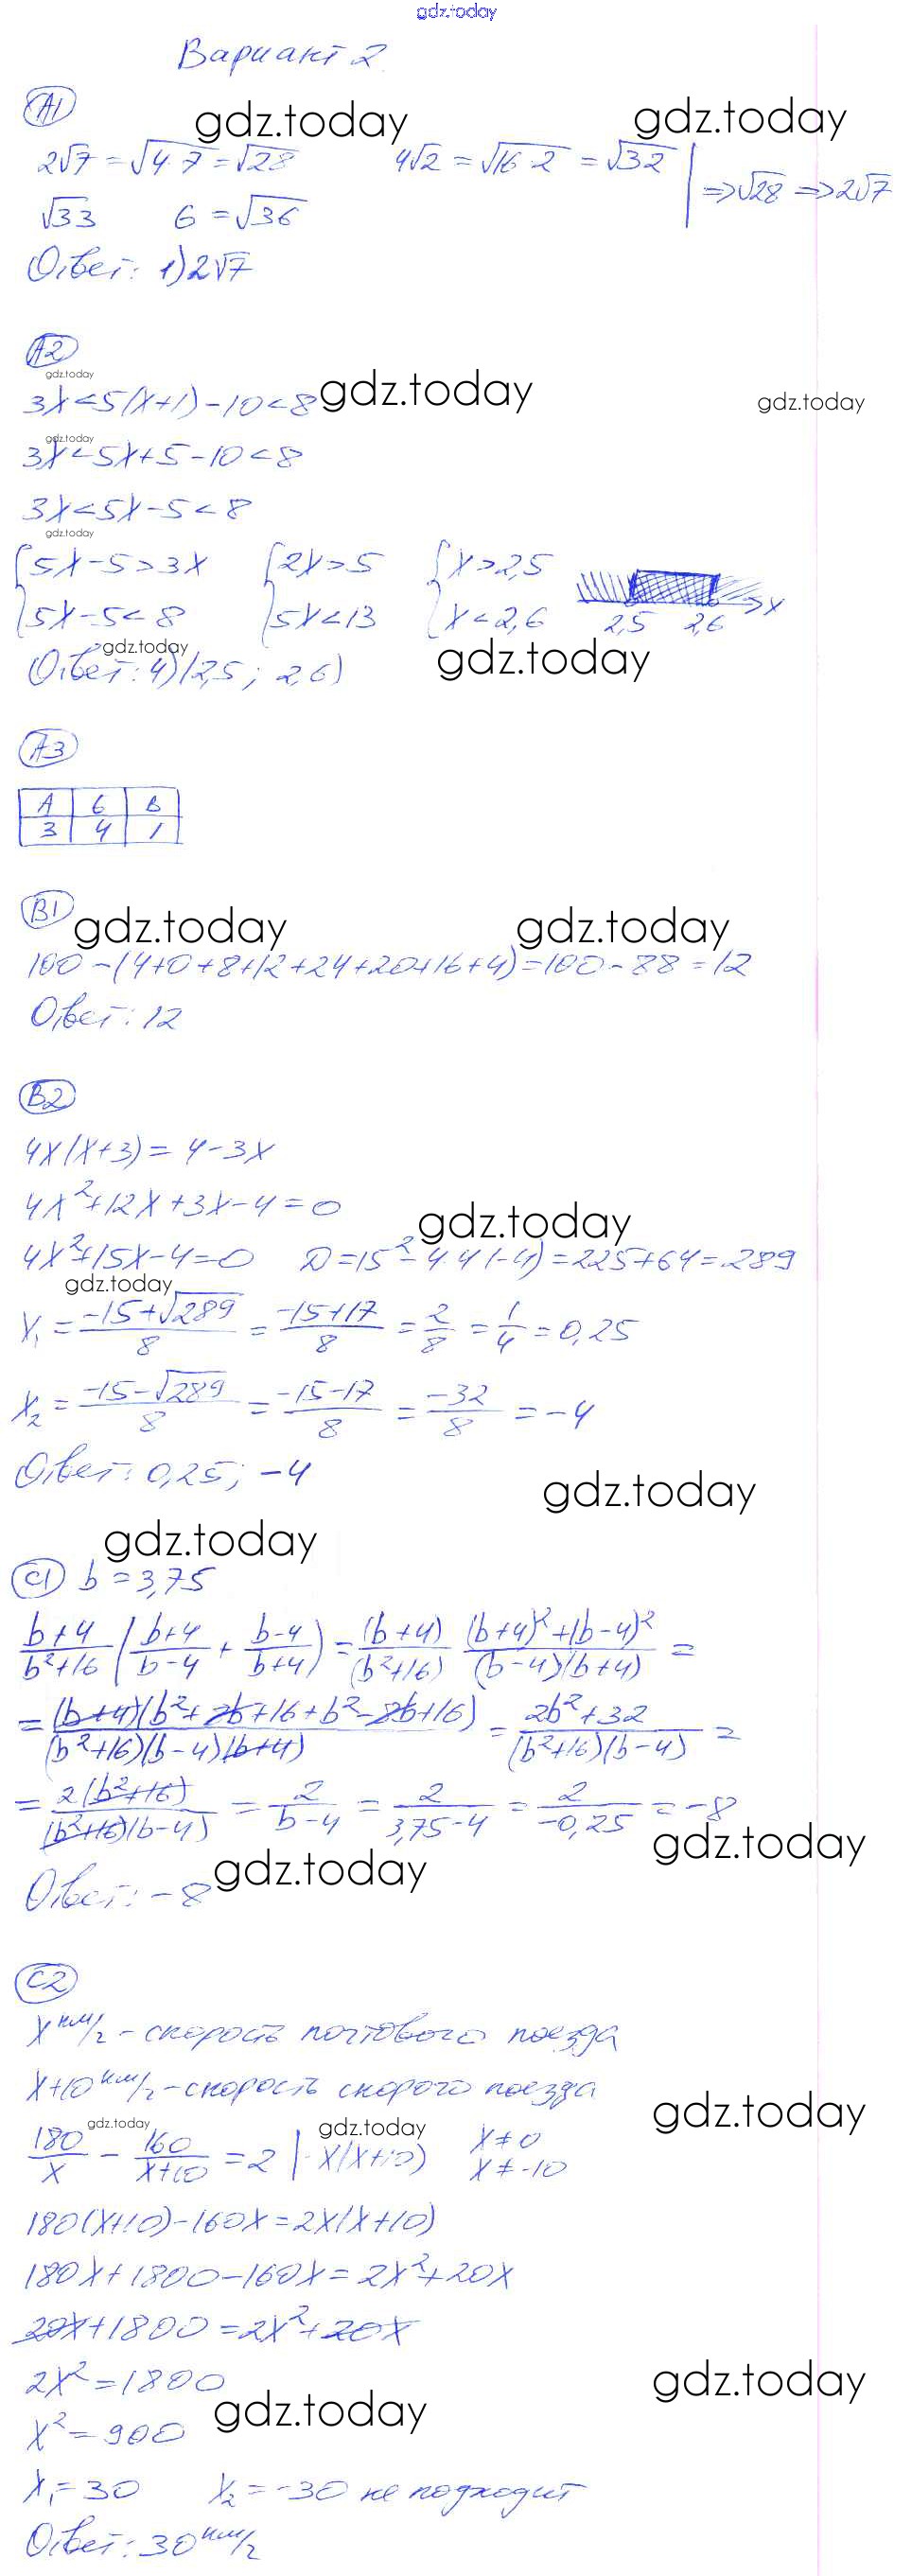 gdz.today
Вариант 2
А1
gdz.today gdz.today
2√7 = √4·7 = √28 4√2 = √16·2 = √32 | => √28 => 2√7
√33 6 = √36
Ответ: 1) 2√7
А2
gdz.today
gdz.today gdz.today
3x < 5(x+1) - 10 < 8
gdz.today
3x < 5x + 5 - 10 < 8
3x < 5x - 5 < 8
gdz.today
{5x - 5 > 3x {2x > 5 {x > 2,5
{5x - 5 < 8 {5x < 13 {x < 2,6 2,5 2,6 x
gdz.today gdz.today
Ответ: 4) (2,5; 2,6)
А3
А Б В
3 4 1
В1
gdz.today gdz.today
100 - (4+0+8+12+24+20+16+4) = 100 - 88 = 12
Ответ: 12
В2
4x(x+3) = 4 - 3x
4x² + 12x + 3x - 4 = 0
gdz.today
4x² + 15x - 4 = 0 D = 15² - 4·4·(-4) = 225 + 64 = 289
gdz.today
x₁ = (-15+√289)/8 = (-15+17)/8 = 2/8 = 1/4 = 0,25
x₂ = (-15-√289)/8 = (-15-17)/8 = -32/8 = -4
Ответ: 0,25; -4
gdz.today
gdz.today
С1 b = 3,75
(b+4)/(b²+16) ((b+4)/(b-4) + (b-4)/(b+4)) = (b+4)/(b²+16) ((b+4)²+(b-4)²)/((b-4)(b+4)) =
= ((b+4)(b²+8b+16+b²-8b+16))/((b²+16)(b-4)(b+4)) = (2b²+32)/((b²+16)(b-4)) =
= (2(b²+16))/((b²+16)(b-4)) = 2/(b-4) = 2/(3,75-4) = 2/(-0,25) = -8
gdz.today
gdz.today
Ответ: -8
С2
x км/г - скорость почтового поезда
x+10 км/г - скорость скорого поезда
gdz.today
gdz.today gdz.today
180/x - 160/(x+10) = 2 | · x(x+10) x ≠ 0
x ≠ -10
180(x+10) - 160x = 2x(x+10)
180x + 1800 - 160x = 2x² + 20x
20x + 1800 = 2x² + 20x
gdz.today
2x² = 1800
gdz.today
x² = 900
x₁ = 30 x₂ = -30 не подходит
Ответ: 30 км/г